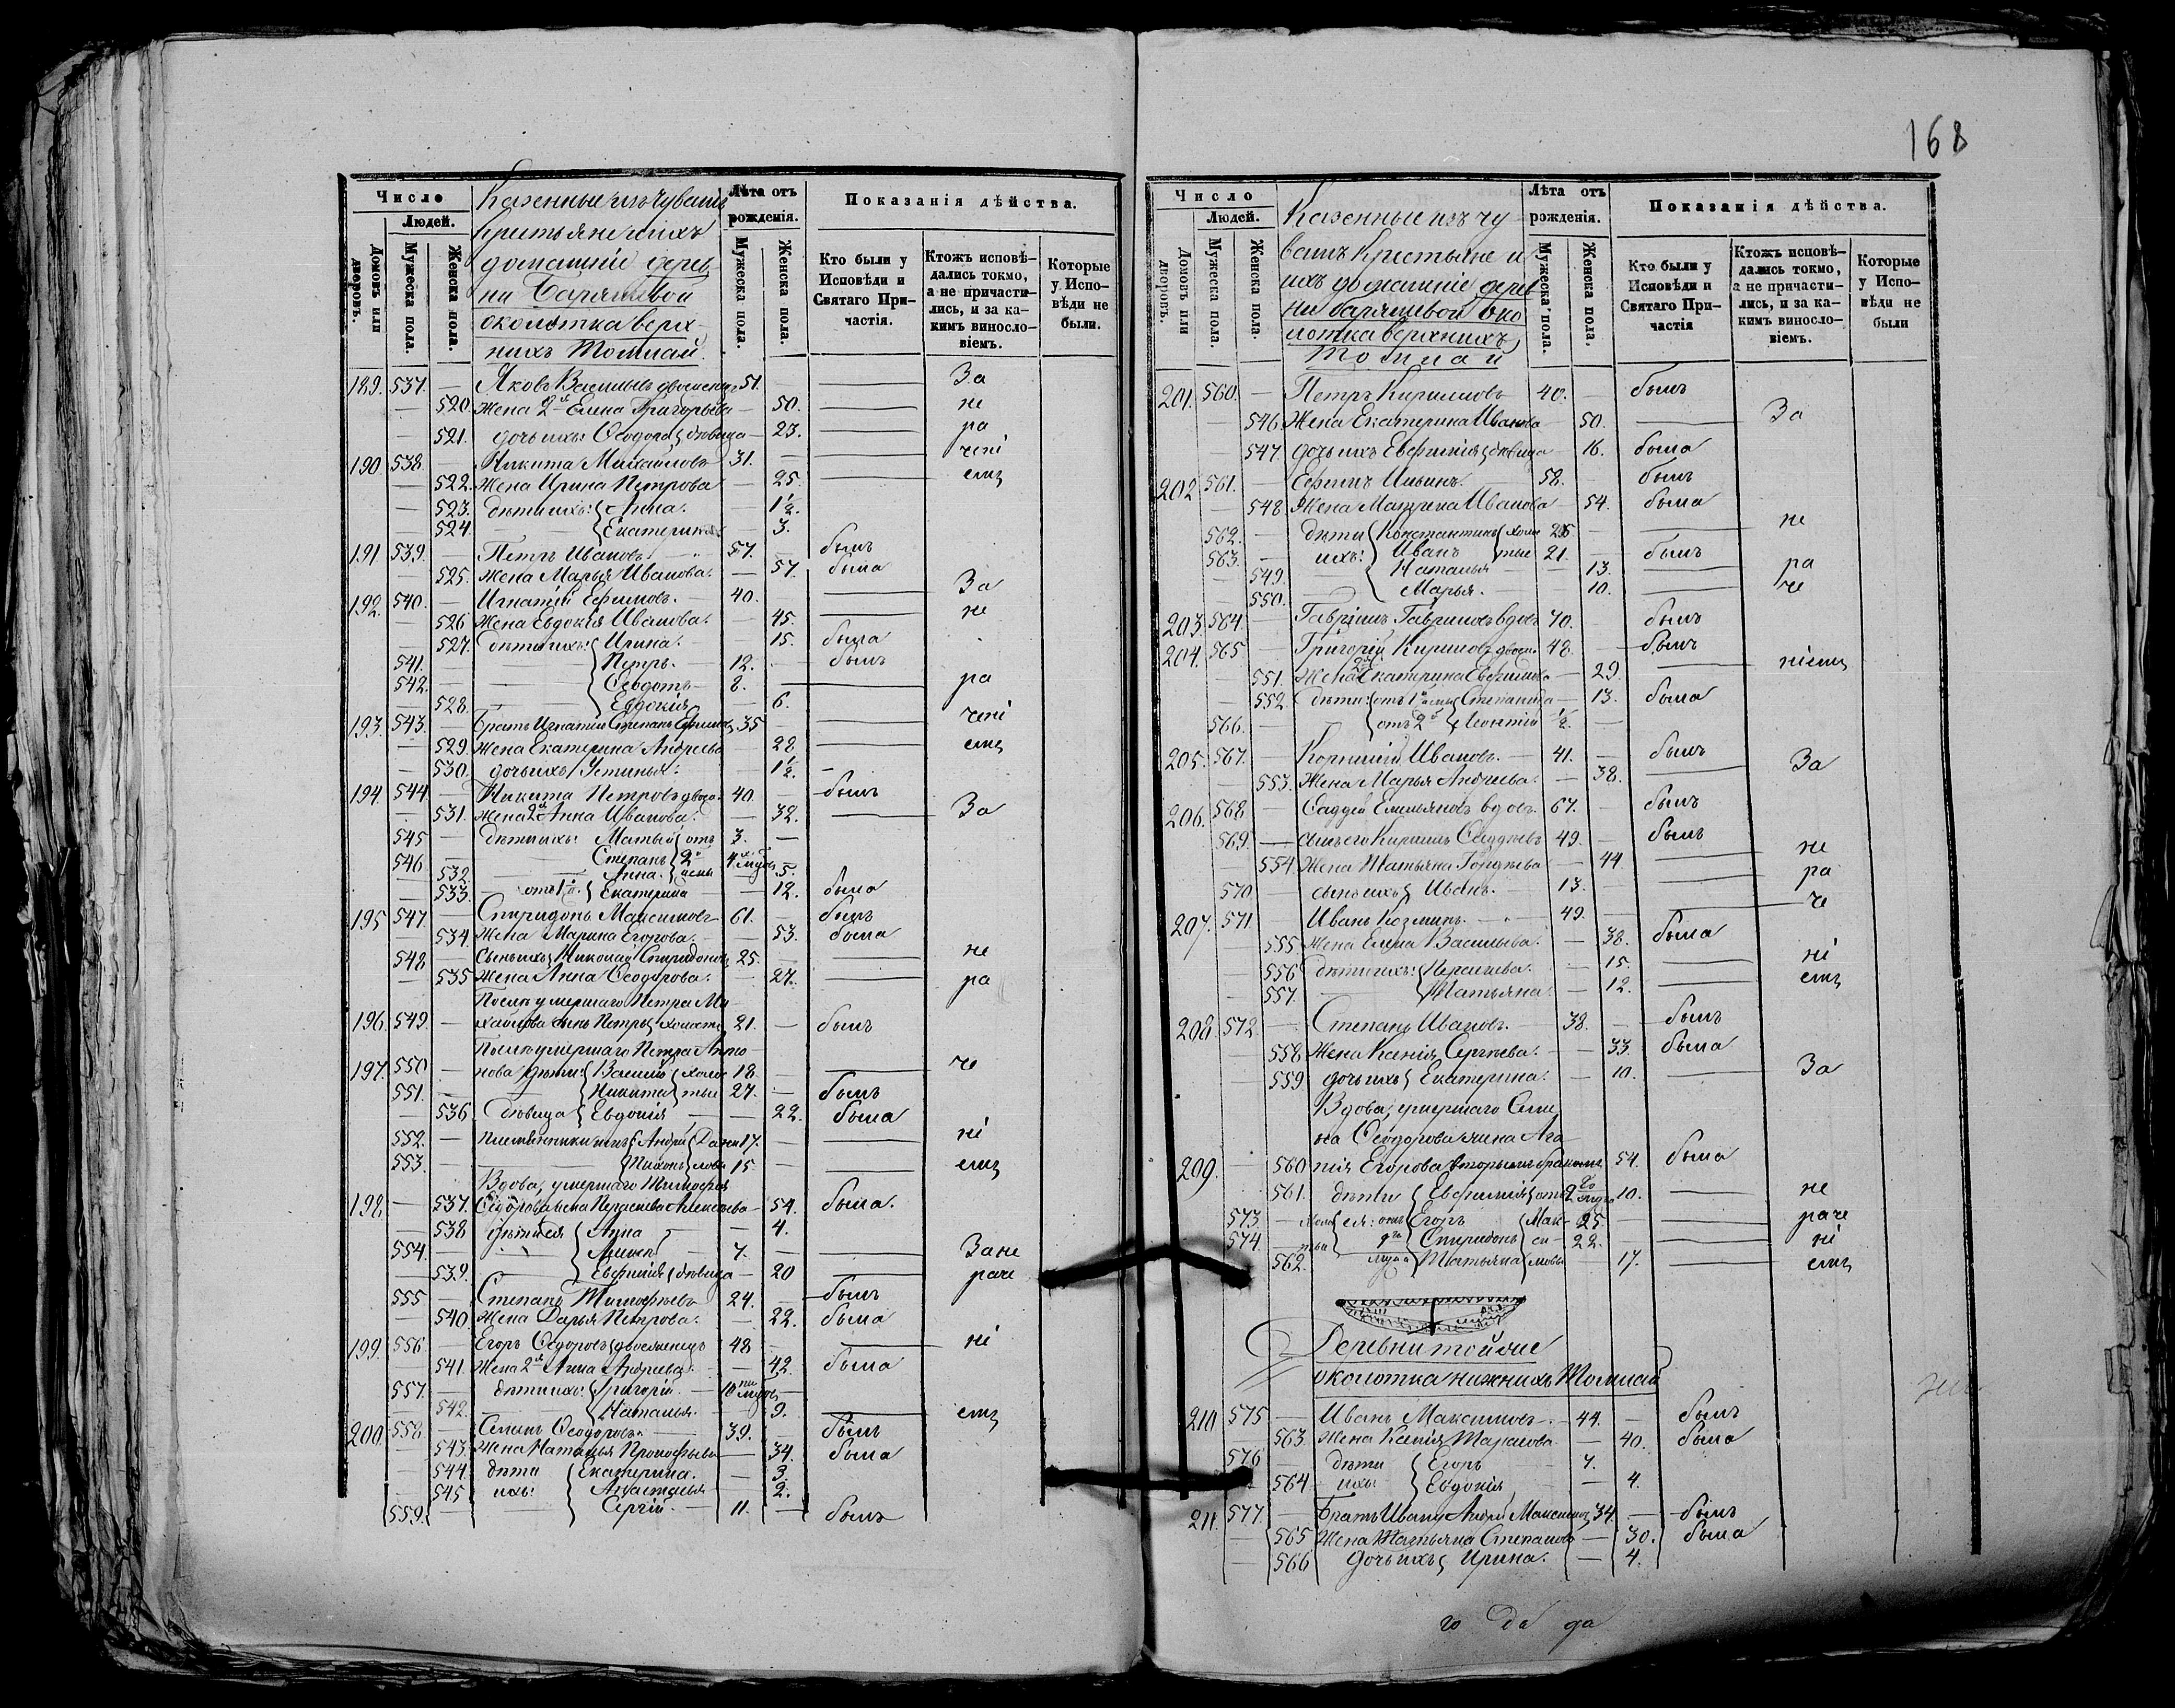 168
Число
Людей.
Домовъ или дворовъ.
Мужеска пола.
Женска пола.
Казенные изъ чувашъ
крестьяне и ихъ
домашніе дерев
ни
околотка верх-
нихъ Томлай.
Лѣта отъ рожденія.
Мужеска пола.
Женска пола.
Показанія дѣйства.
Кто были у Исповѣди и Святаго При-частія.
Ктожъ исповѣ-дались токмо, а не причасти-лись, и за ка-кимъ винносло-віемъ.
Которые у Испо-вѣди не были.
189. 537. — Яковъ Васильевъ двоеженецъ 51. — За
— 520. Жена 2я Елена Григорьева — 50. — не
— 521. дочь ихъ: Ѳеодора девица — 23. — ра
190. 538. — Никита Михайловъ 31. — чені
— 522. Жена Ирина Петрова — 25. — емъ
— 523. дѣти ихъ: Анна. — 1½.
— 524. — Екатерина — 3.
191 539. — Петръ Ивановъ. 57. — былъ
— 525. Жена Марья Иванова. — 57. была
192. 540. — Игнатій Ефимовъ. — 40. — За
— 526 Жена Евдокія Иванова. — 45. — не
— 527. дѣти ихъ: Ирина. 15. была
541. — Петръ. 12. — былъ
542. — Ѳеодотъ — 8. — ра
— 528. — Евдокія — 6.
193. 543. — Братъ Игнатія Степанъ Ефимовъ 35 — чені
— 529. Жена Екатерина Андреева — 28 — емъ
— 530. дочь ихъ Устинья: — 1½. —
194. 544. — Никита Петровъ двоеж. 40. — былъ
— 531. Жена 2я Анна Иванова. — 32. — За
545 — дѣти ихъ: Матвей отъ 3. —
546 — Степанъ 2й
532. — Анна. жены 5.
— 533. — отъ 1й. Екатерина — 12. была
195 547. — Спиридонъ Максимовъ 61. — былъ
— 534. Жена Марина Егорова. — 53. была
548 — сынъ ихъ Николай Спиридоновъ 25. — не
— 535 Жена Анна Ѳеодорова. — 27. — ра
Послѣ умершаго Петра Ми
196. 549. — хайлова сынъ Петръ холостъ 21. — былъ
Послѣ умершаго Петра
197. 550 — нова дѣти: Василій холос 18. — че
551. — Никита тые 27. — былъ
— 536 Дѣвица Евдокія — 22. была
552. — племянники ихъ Андрей Дани 17. — ні
553. — Тихонъ ловы 15. — емъ
Вдова, умершаго Тимофея
198 — 537. Ѳедорова жена Парасковья Алексеева — 54. была.
— 538 дѣти ея Анна — 4.
554. — 7. — Зане
— 539. — Евфимія дѣвица — 20 — раче
555 — Степанъ Тимофеевъ 24. — былъ
— 540 Жена Дарья Петрова. — 22. была
199. 556 — Егоръ Ѳедоровъ двоеженецъ 48 — ні
— 541. Жена 2я Анна Андреева. — 42. была
557. — дѣти ихъ: Григорій. —
— 542. — Наталья. 9. — емъ
200. 558 — Семенъ Ѳеодоровъ. 39. — былъ
— 543. Жена Наталья Прокофьева — 34. была
— 544 дѣти Екатерина. — 3.
— 545 ихъ: Анастасья — 2.
559. — Сергій. — 11. — былъ
Число
Людей.
Домовъ или дворовъ.
Мужеска пола.
Женска пола.
Казенные изъ чу
вашъ крестьяне и
ихъ домашніе дерев
ни око
лотка верхнихъ
Томлай
Лѣта отъ рожденія.
Мужеска пола.
Женска пола.
Показанія дѣйства.
Кто были у Исповѣди и Святаго При-частія
Ктожъ исповѣ-дались токмо, а не причасти-лись, и за ка-кимъ винносло-віемъ.
Которые у Испо-вѣди не были
201. 560. — Петръ Кириловъ 40. — былъ
546 Жена Екатерина Иванова — 50. — За
547 дочь ихъ Евфимія дѣвица — 16. была
202 561. — Ефимъ Ильинъ. 58. — былъ
— 548 Жена Матрена Иванова — 54. была
562. — дѣти Константинъ холос — не
563. — ихъ: Иванъ тые 21. — былъ
— 549. — Наталья — 13. — ра
— 550. — Марья. — 10. — че
203. 564. — Гаврилъ Гавриловъ вдовъ 70. — былъ
204. 565 — Григорій Кириловъ двоеж. 48 — былъ
— 551. Жена 2я Екатерина Евфимова — 29. — ніемъ
— 552. Дѣти: отъ 1й жены Степанида — 13. была
566. — отъ 2й Леонтій ½. —
205. 567. — Корнилій Ивановъ. — 41. — былъ
553. Жена Марья Андреева. — 38. — За
206. 568 — Ѳаддей Емельяновъ вдовъ. 67. — былъ
569. — сынъ его Кирилъ Ѳаддеевъ 49. — былъ
— 554. Жена Татьяна Гордеева — 44 — не
570 сынъ ихъ Иванъ. — 13. — ра
207. 571 Иванъ Козминъ. — 49. — че
— 555 Жена Елена Васильева. — 38. была
— 556 дѣти ихъ: — 15. — ні
— 557. — Татьяна. — 12. — емъ
208. 572. — Степанъ Ивановъ. — 38. — былъ
— 558 Жена Ксенія Сергеева. — 33. была
— 559 дочь ихъ Екатерина. — 10. — За
Вдова, умершаго Семе
на Ѳеодорова жена Ага
209. — 560 пія Егорова вторымъ бракомъ 54. была
561. дѣти Евфимія отъ 2го мужа 10. — не
573. — ея: отъ Егоръ Мак- 25. — раче
574. — 1го Спиридонъ си- 22. — ні
562. мужа Татьяна мовы — 17. — емъ
Деревни тойже
околотка нижнихъ Томлай
210 575 — Иванъ Максимовъ. — 44. — былъ
563. Жена Ксенія Тарасова. — 40. была
576 — дѣти Егоръ 7.
564 ихъ: Евдокія — 4.
211. 577. — Братъ Ивану Андрей Максимовъ 34. — былъ
— 565 Жена Татьяна Степанова — 30. была
— 566 дочь ихъ Ирина. — 4.
го да да